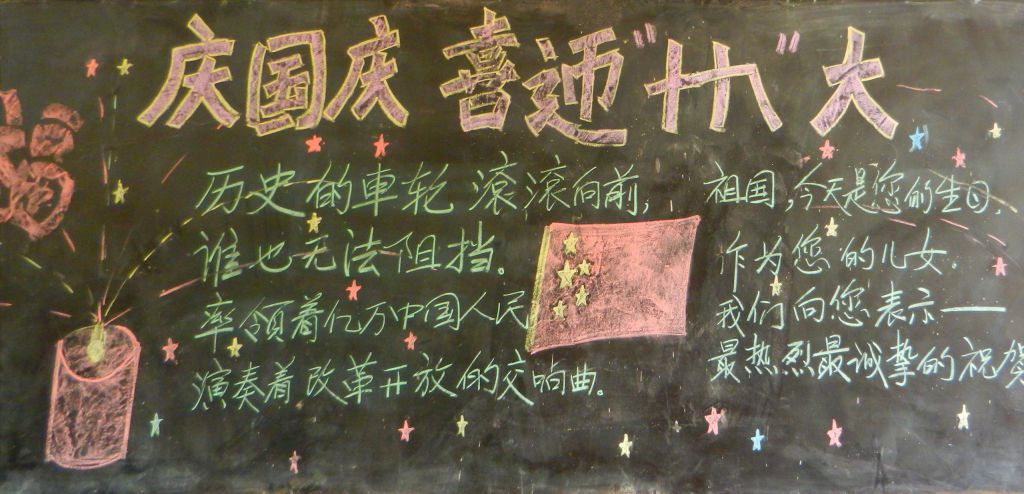 庆国庆 喜迎"十八"大
历史的車轮滚滚向前,
谁也无法阻挡。
率领着亿万中国人民
演奏着改革开放的交响曲。
祖国,今天是您的生日,
作为您的儿女.
我们向您表示——
最热烈最诚挚的祝贺